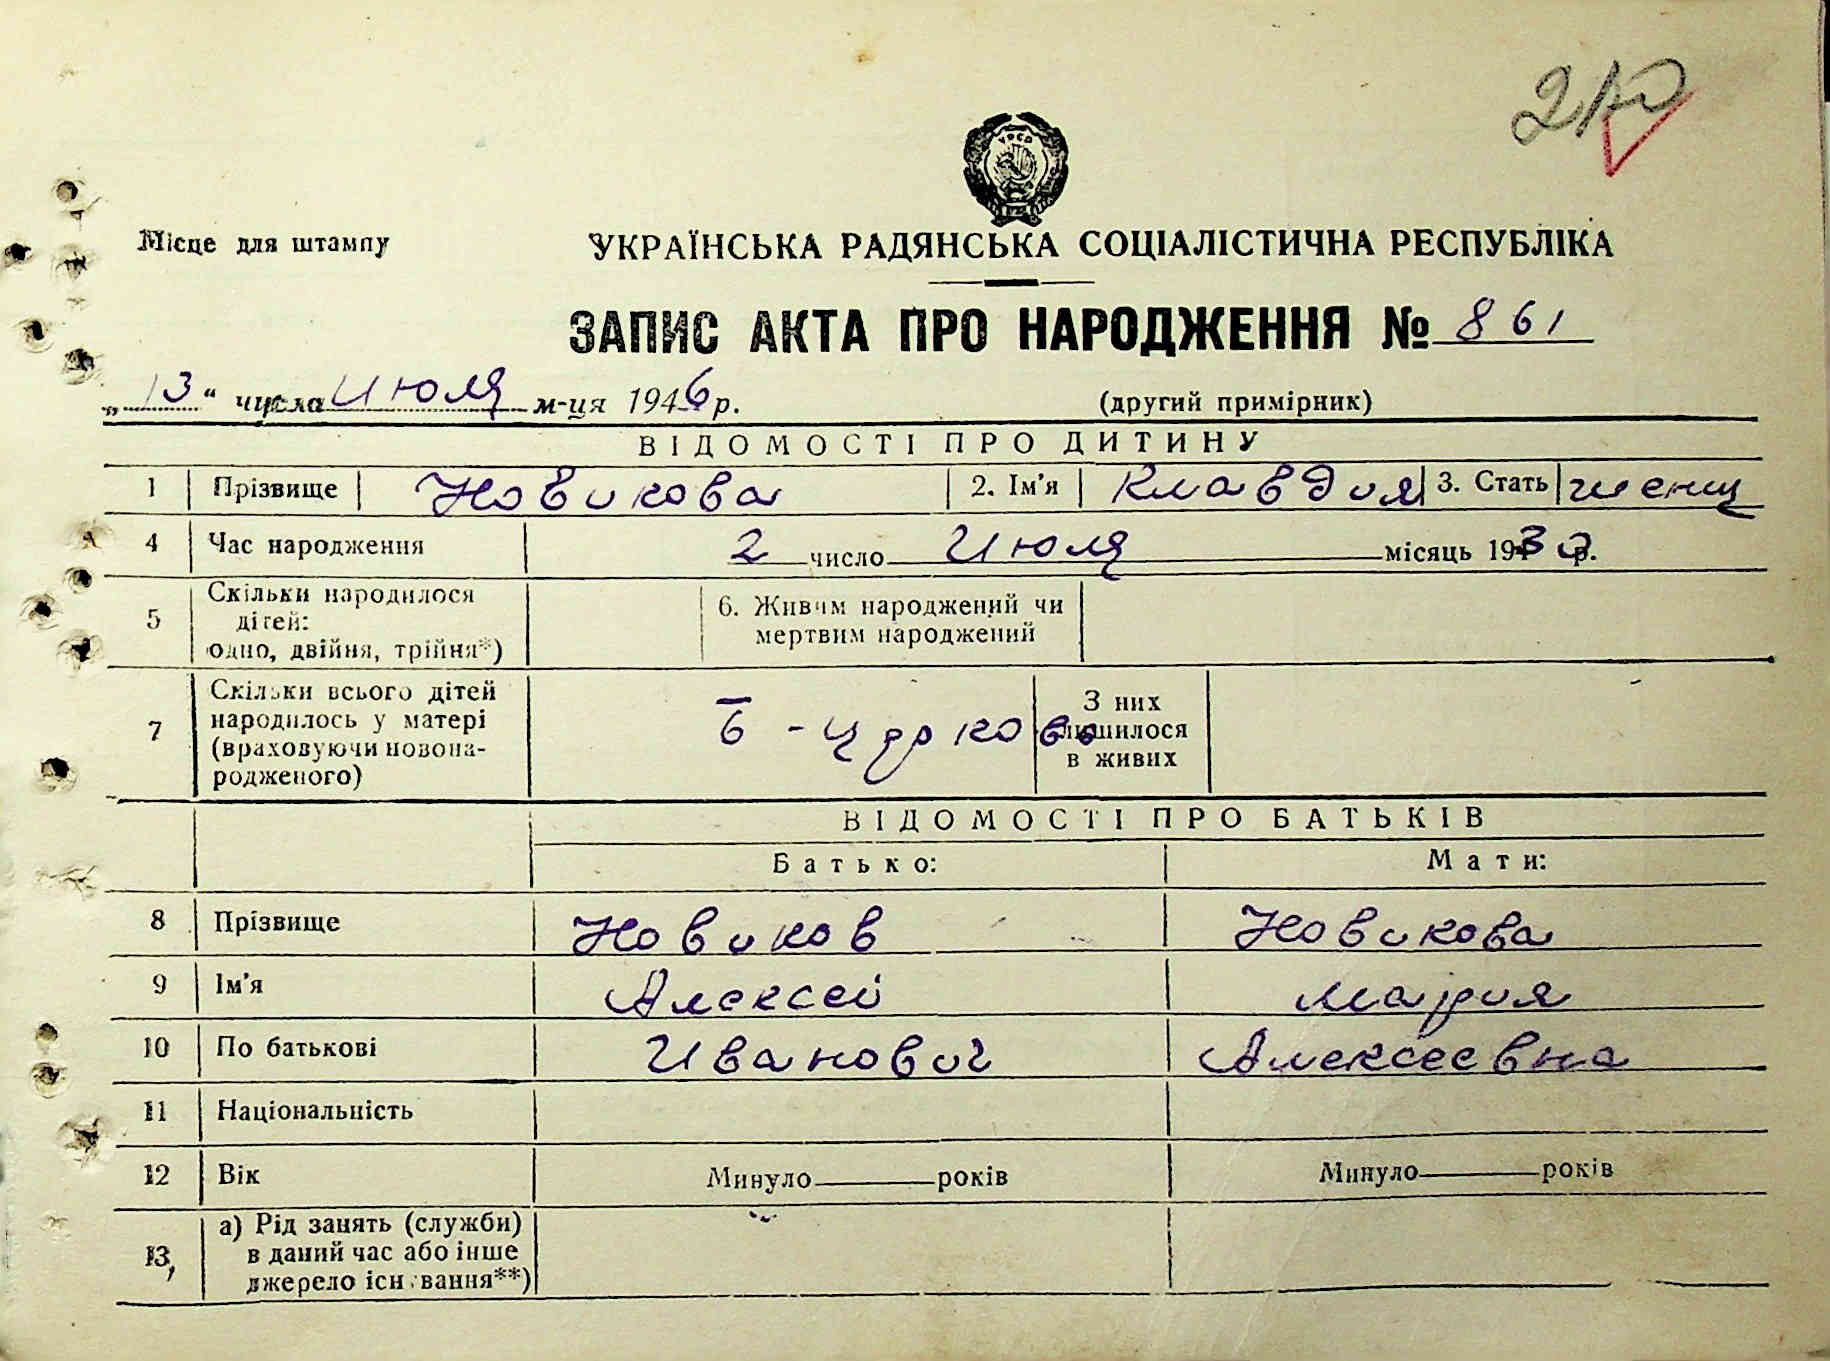 210
УРСР
Місце для штампу
УКРАЇНСЬКА РАДЯНСЬКА СОЦІАЛІСТИЧНА РЕСПУБЛІКА
ЗАПИС АКТА ПРО НАРОДЖЕННЯ № 861
„13“ числа Июля м-ця 1946 р.
(другий примірник)
ВІДОМОСТІ ПРО ДИТИНУ
1 Прізвище Новикова 2. Ім'я Клавдия 3. Стать женщ
4 Час народження 2 число Июля місяць 193 р.
5 Скільки народилося дітей: одно, двійня, трійня*) 6. Живим народжений чи мертвим народжений
7 Скільки всього дітей народилось у матері (враховуючи новонародженого) З них лишилося в живих
ВІДОМОСТІ ПРО БАТЬКІВ
Батько: Мати:
8 Прізвище Новиков Новикова
9 Ім'я Алексей Мария
10 По батькові Иванович Алексеевна
11 Національність
12 Вік Минуло років Минуло років
13, а) Рід занять (служби) в даний час або інше джерело існування**)